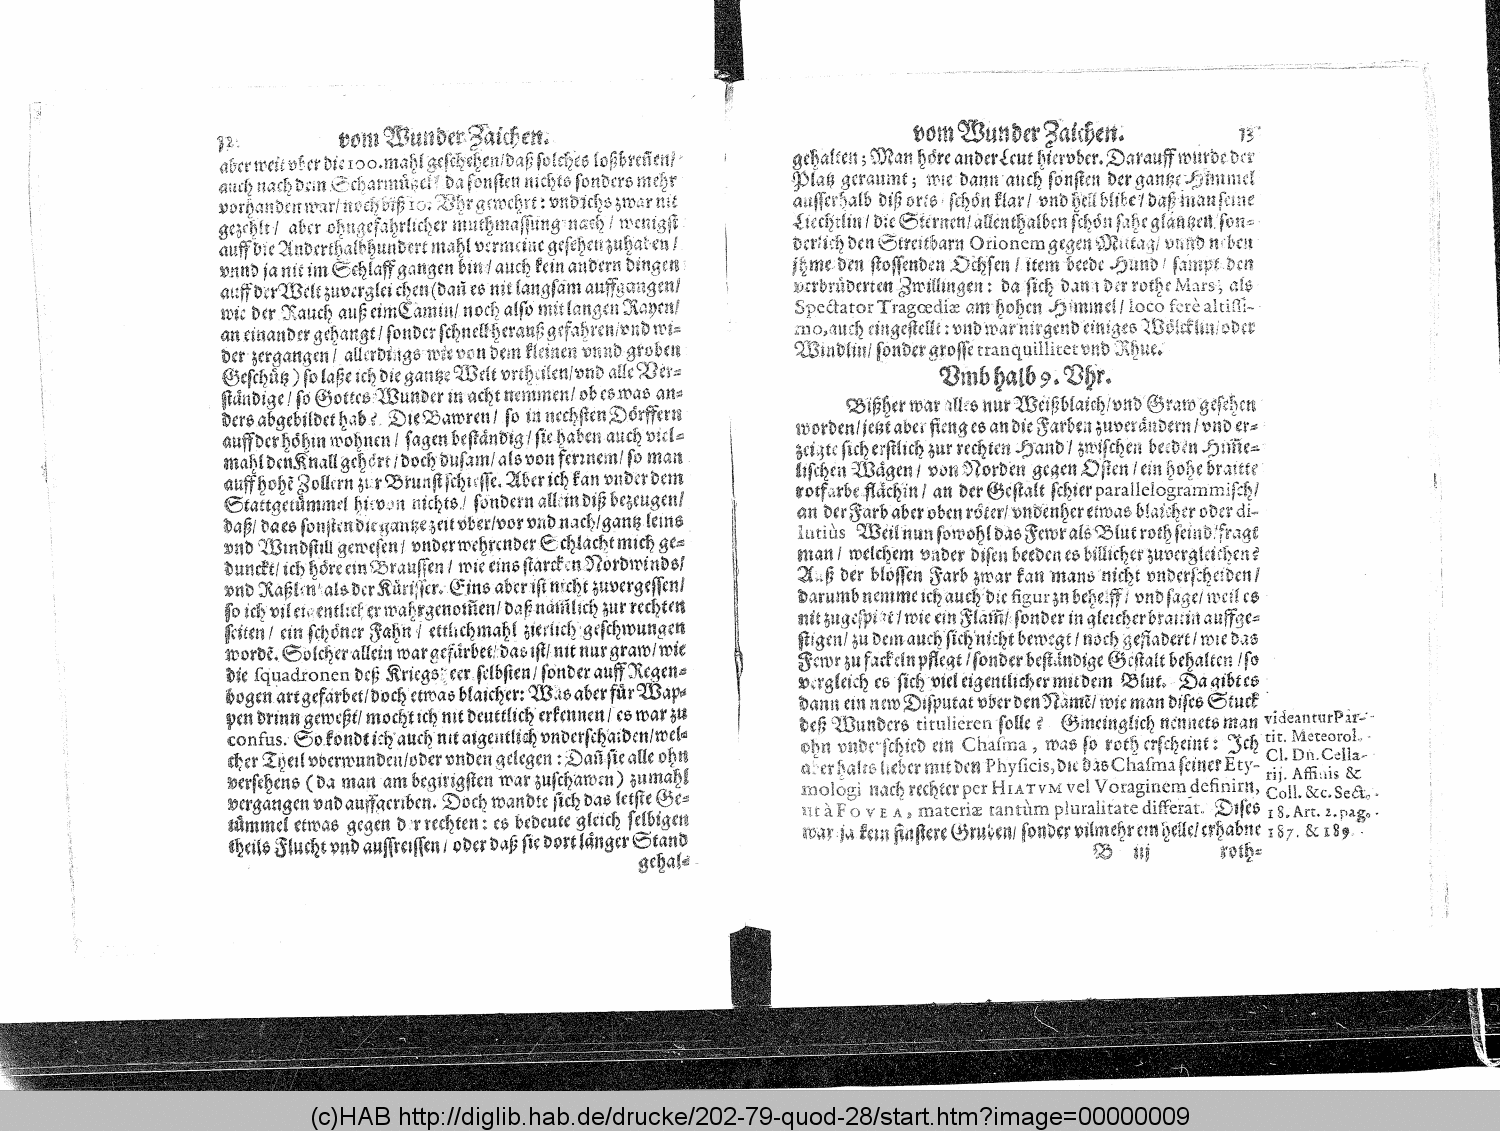 12.
vom Wunder Zaichen.
aber weit vber die 100. mahl geschehen/ daß solches loßbreñen/
auch nach dem Scharmützel/ da sonsten nichts sonders mehr
vorhanden war/ noch biß 10. Vhr gewehrt: vnd ichs zwar nit
gezehlt/ aber ohngefahrlicher muthmassung nach/ wenigst
auff die Anderthalbhundert mahl vermeine gesehen zuhaben/
vnnd ja nit im Schlaff gangen bin/ auch kein andern dingen
auff der Welt zuvergleichen (dañ es nit langsam auffgangen/
wie der Rauch auß eim Camin/ noch also mit langen Rayen/
an einander gehangt/ sonder schnell herauß gefahren/ vnd wi-
der zergangen/ allerdings wie von dem kleinen vnnd groben
Geschütz) so laße ich die gantze Welt vrtheilen/ vnd alle Ver-
ständige/ so Gottes Wunder in acht nemmen/ ob es was an-
ders abgebildet hab? Die Bawren/ so in nechsten Dörffern
auff der höhin wohnen/ sagen beständig/ sie haben auch viel-
mahl den Knall gehört/ doch dusam/ als von ferrnem/ so man
auff hohẽ Zollern zur Brunst schiesse. Aber ich kan vnder dem
Stattgetümmel hievon nichts/ sondern allein diß bezeugen/
daß/ da es sonsten die gantze zeit vber/ vor vnd nach/ gantz leins
vnd Windstill gewesen/ vnder wehrender Schlacht mich ge-
dunckt/ ich höre ein Braussen/ wie eins starcken Nordwinds/
vnd Raßlen als der Kürisser. Eins aber ist nicht zuvergessen/
so ich vil eigentlicher wahrgenom̃en/ daß näm̃lich zur rechten
seiten/ ein schöner Fahn/ ettlichmahl zierlich geschwungen
wordẽ. Solcher allein war gefärbet/ das ist/ nit nur graw/ wie
die squadronen deß Kriegsheer selbsten/ sonder auff Regen-
bogen art gefärbet/ doch etwas blaicher: Was aber für Wap-
pen drinn geweßt/ mocht ich nit deuttlich erkennen/ es war zu
confus. So kondt ich auch nit aigentlich vnderschaiden/ wel-
cher Theil vberwunden/ oder vnden gelegen: Dañ sie alle ohn
versehens (da man am begirigsten war zuschawen) zumahl
vergangen vnd auffgeriben. Doch wandte sich das letste Ge-
tümmel etwas gegen der rechten: es bedeute gleich selbigen
theils Flucht vnd aussreissen/ oder daß sie dort länger Stand
gehal-
vom Wunder Zaichen.
13
gehalten; Man höre ander Leut hiervber. Darauff wurde der
Platz geraumt; wie dann auch sonsten der gantze Himmel
ausserhalb diß orts schön klar/ vnd hell blibe/ daß man seine
Liechtlin/ die Sternen/ allenthalben schön sahe gläntzen/ son-
derlich den Streitbarn Orionem gegen Mittag/ vnnd neben
jhme den stossenden Ochsen/ item beede Hund/ sampt den
verbrüderten Zwillingen: da sich dann der rothe Mars, als
Spectator Tragœdiæ am hohen Himmel/ loco ferè altissi-
mo, auch eingestellt: vnd war nirgend einiges Wölcklin/ oder
Windlin/ sonder grosse tranquillitet vnd Rhue.
Vmb halb 9. Vhr.
Bißher war alles nur Weißblaich/ vnd Graw gesehen
worden/ jetzt aber fieng es an die Farben zuverändern/ vnd er-
zeigte sich erstlich zur rechten Hand/ zwischen beeden Him̃e-
lischen Wägen/ von Norden gegen Osten/ ein hohe braitte
rotfarbe flächin/ an der Gestalt schier parallelogrammisch/
an der Farb aber oben röter/ vndenher etwas blaicher oder di-
lutiùs Weil nun sowohl das Fewr als Blut roth seind/ fragt
man/ welchem vnder disen beeden es billicher zuvergleichen?
Auß der blossen Farb zwar kan mans nicht vnderscheiden/
darumb nemme ich auch die figur zu behelff/ vnd sage/ weil es
nit zugespitzt/ wie ein Flam̃/ sonder in gleicher braitin auffge-
stigen/ zu dem auch sich nicht bewegt/ noch gefladert/ wie das
Fewr zu fackeln pflegt/ sonder beständige Gestalt behalten/ so
vergleich es sich viel eigentlicher mit dem Blut. Da gibt es
dann ein new Disputat vber den Nam̃ẽ/ wie man dises Stuck
deß Wunders titulieren solle? Gmeinglich nennets man
ohn vnderschied ein Chasma, was so roth erscheint: Ich
aber halts lieber mit den Physicis, die das Chasma seiner Ety-
mologi nach rechter per HIATVM vel Voraginem definirn,
ut à FOVEA, materiæ tantùm pluralitate differat. Dises
war ja kein finstere Gruben/ sonder vilmehr ein helle/ erhabne
B iij
roth-
videantur Par-
tit. Meteorol.
Cl. Dn. Cella-
rij. Affinis &
Coll. &c. Sect.
18. Art. 2. pag.
187. & 189.
(c)HAB http://diglib.hab.de/drucke/202-79-quod-28/start.htm?image=00000009